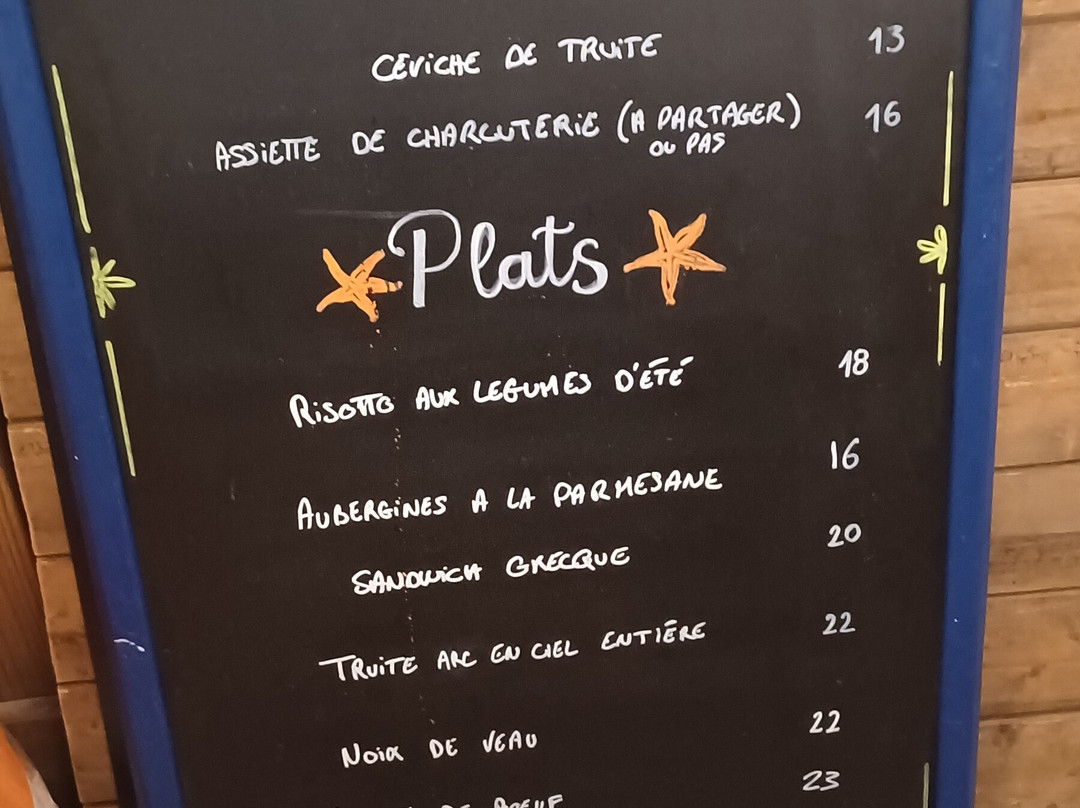 CEVICHE DE TRUITE 13
ASSIETTE DE CHARCUTERIE (A PARTAGER) 16
OU PAS
Plats
RISOTTO AUX LEGUMES D'ÉTÉ 18
AUBERGINES A LA PARMESANE 16
SANDWICH GRECQUE 20
TRUITE ARC EN CIEL ENTIÈRE 22
NOIX DE VEAU 22
DE BOEUF 23